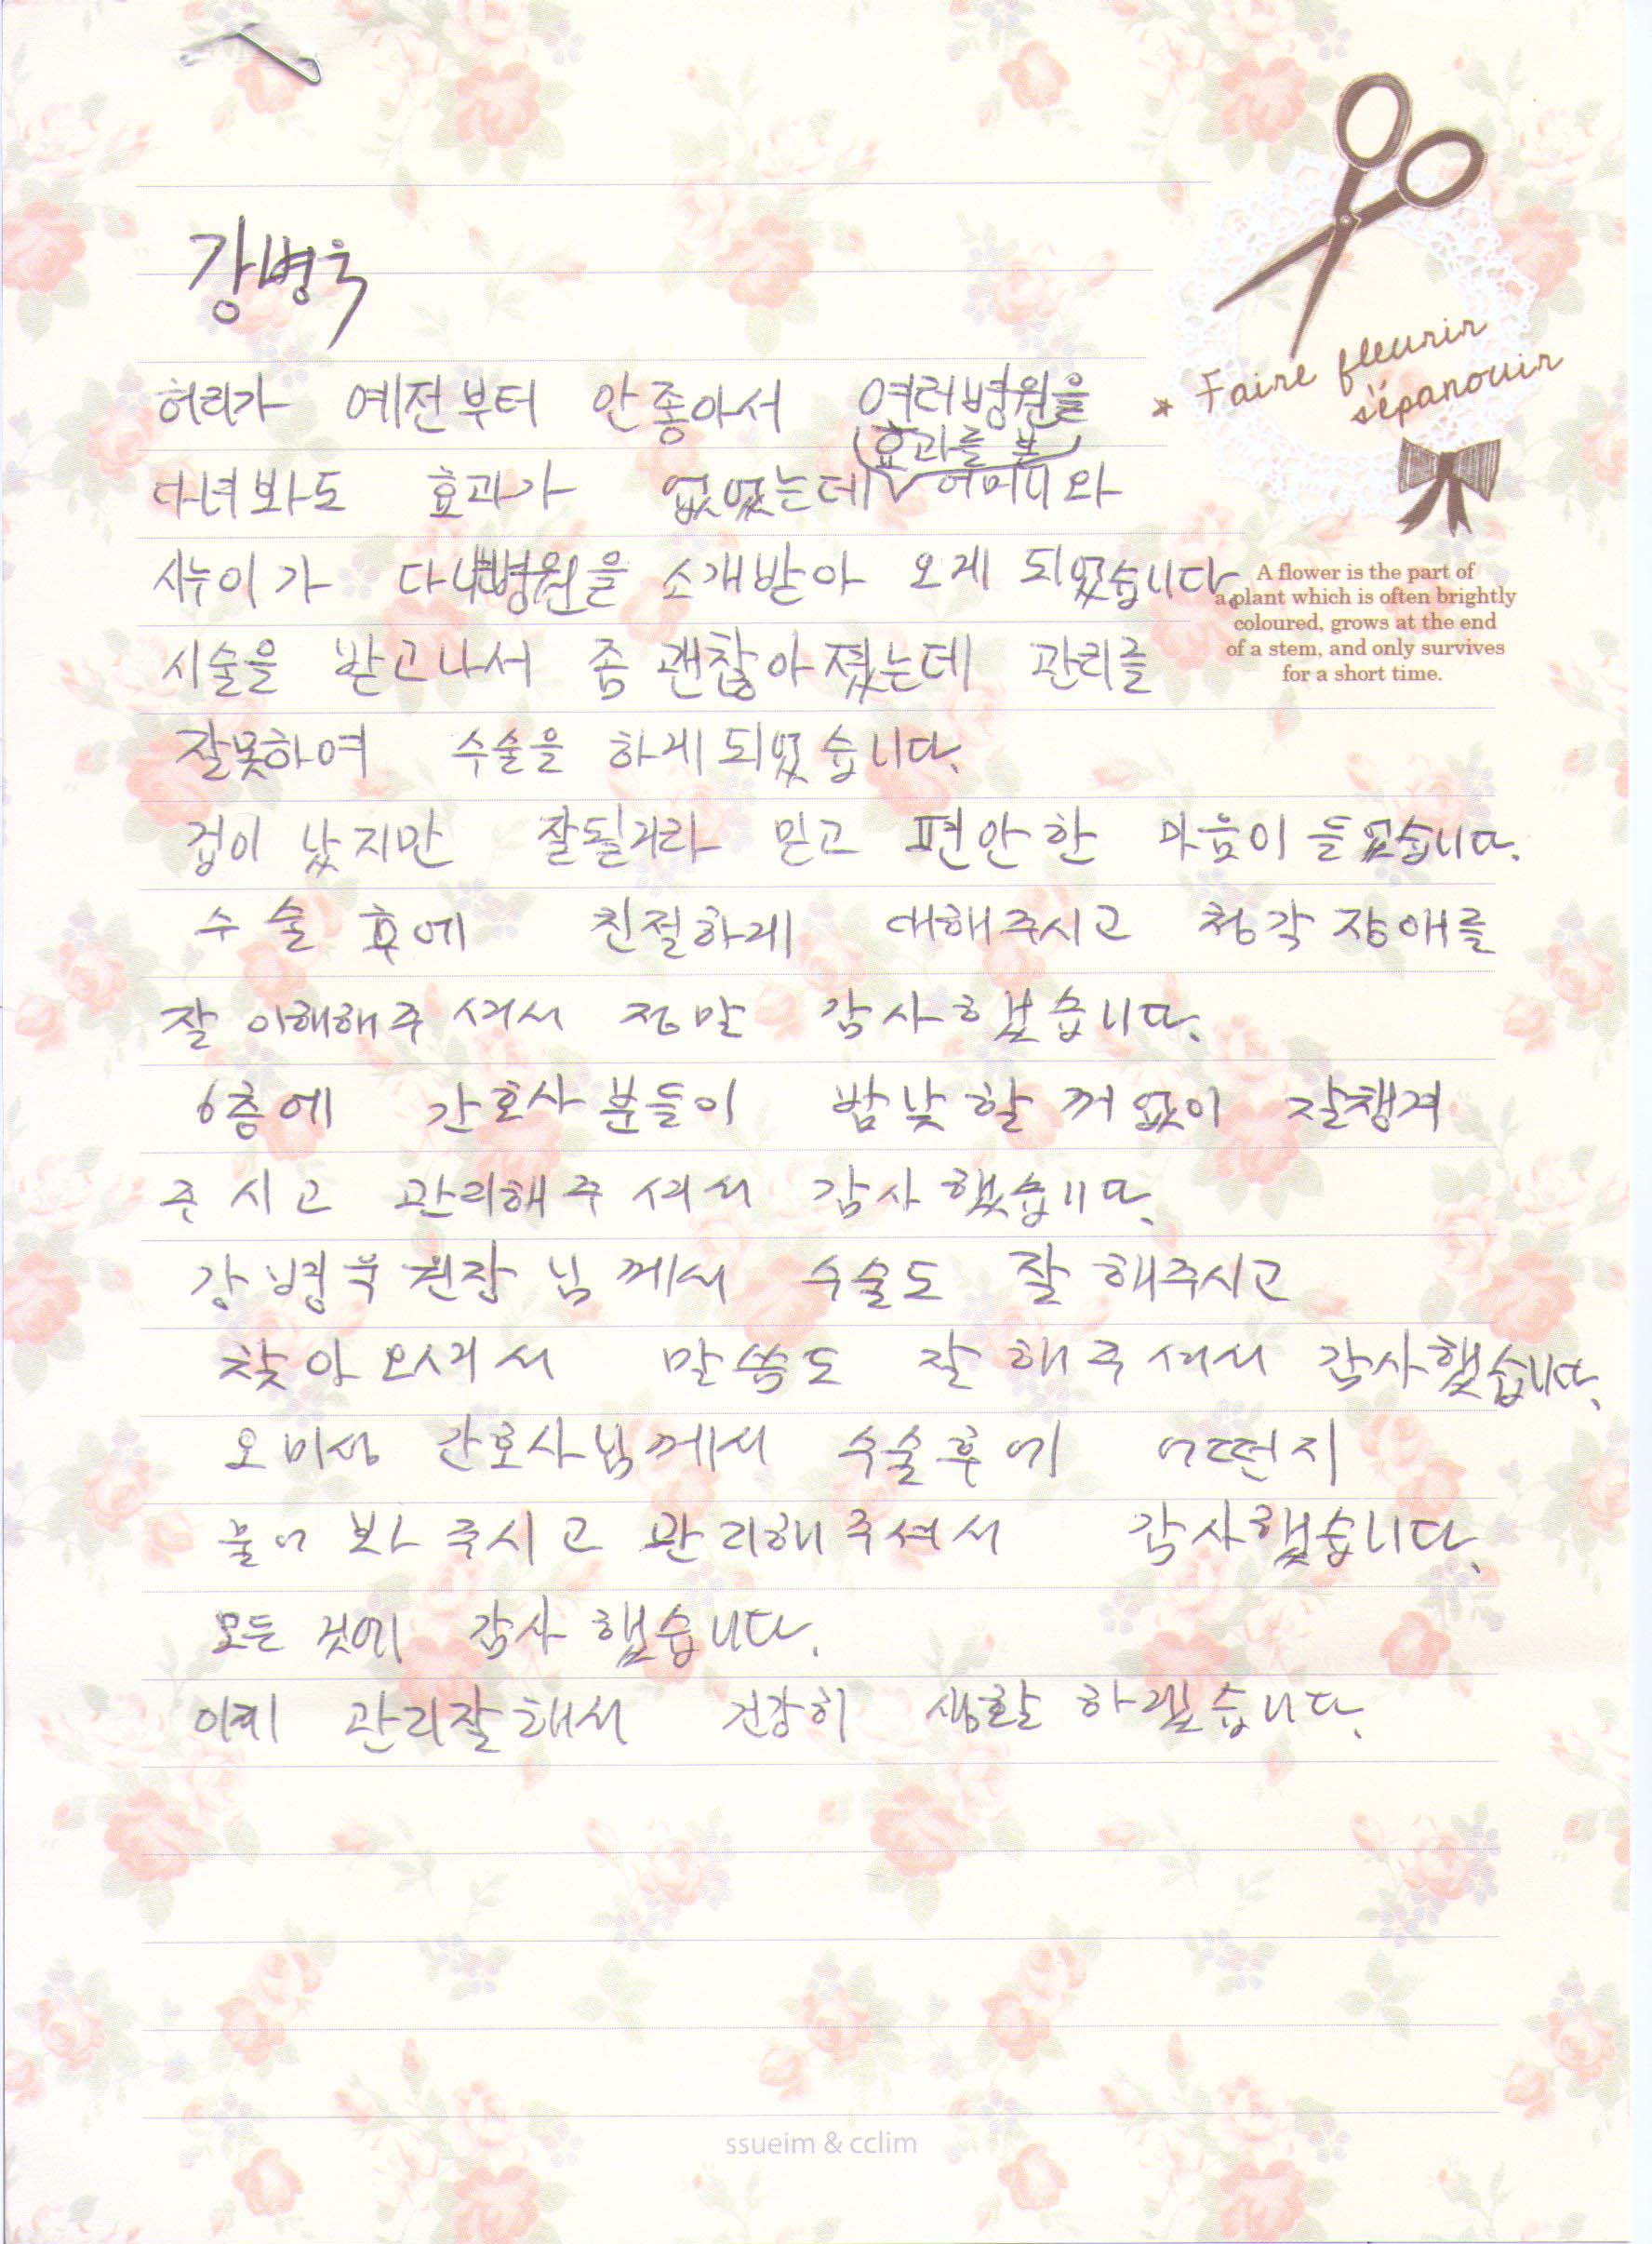 강병욱
Faire fleurir
s'épanouir
허리가 예전부터 안 좋아서 여러병원을
효과를 본
다녀봐도 효과가 없었는데 어머니와
시누이가 다니는병원을 소개받아 오게 되었습니다.
A flower is the part of
a plant which is often brightly
coloured, grows at the end
of a stem, and only survives
for a short time.
시술을 받고나서 좀 괜찮아졌는데 관리를
잘못하여 수술을 하게되었습니다.
겁이 났지만 잘될거라 믿고 편안한 마음이 들었습니다.
수술 후에 친절하게 대해주시고 청각장애를
잘 이해해주셔서 정말 감사했습니다.
6층에 간호사분들이 밤낮할꺼없이 잘챙겨
주시고 관리해주셔서 감사했습니다.
강병욱원장님께서 수술도 잘 해주시고
찾아오셔서 말씀도 잘 해주셔서 감사했습니다.
오미성 간호사님께서 수술후에 어떤지
물어봐주시고 관리해주셔서 감사했습니다.
모든것에 감사했습니다.
관리잘해서 건강히 생활하겠습니다.
ssueim & cclim